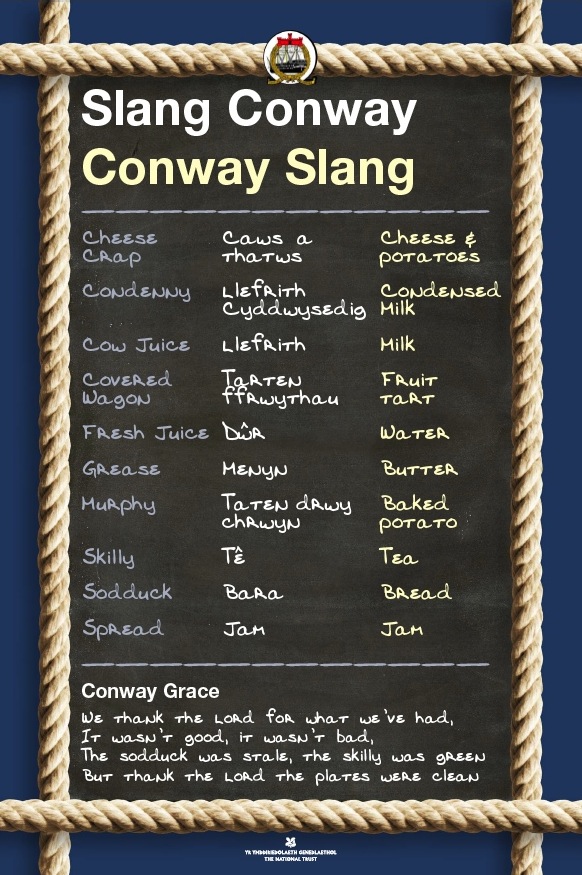 Slang Conway
Conway Slang
Cheese Crap
Caws a thatws
Cheese & potatoes
Condenny
Llefrith Cyddwysedig
Condensed Milk
Cow Juice
Llefrith
Milk
Covered Wagon
Tarten ffrwythau
Fruit tart
Fresh Juice
Dŵr
Water
Grease
Menyn
Butter
Murphy
Taten drwy chrwyn
Baked potato
Skilly
Tê
Tea
Sodduck
Bara
Bread
Spread
Jam
Jam
Conway Grace
We thank the Lord for what we've had,
It wasn't good, it wasn't bad,
The sodduck was stale, the skilly was green
But thank the Lord the plates were clean
YR YMDDIRIEDOLAETH GENEDLAETHOL
THE NATIONAL TRUST